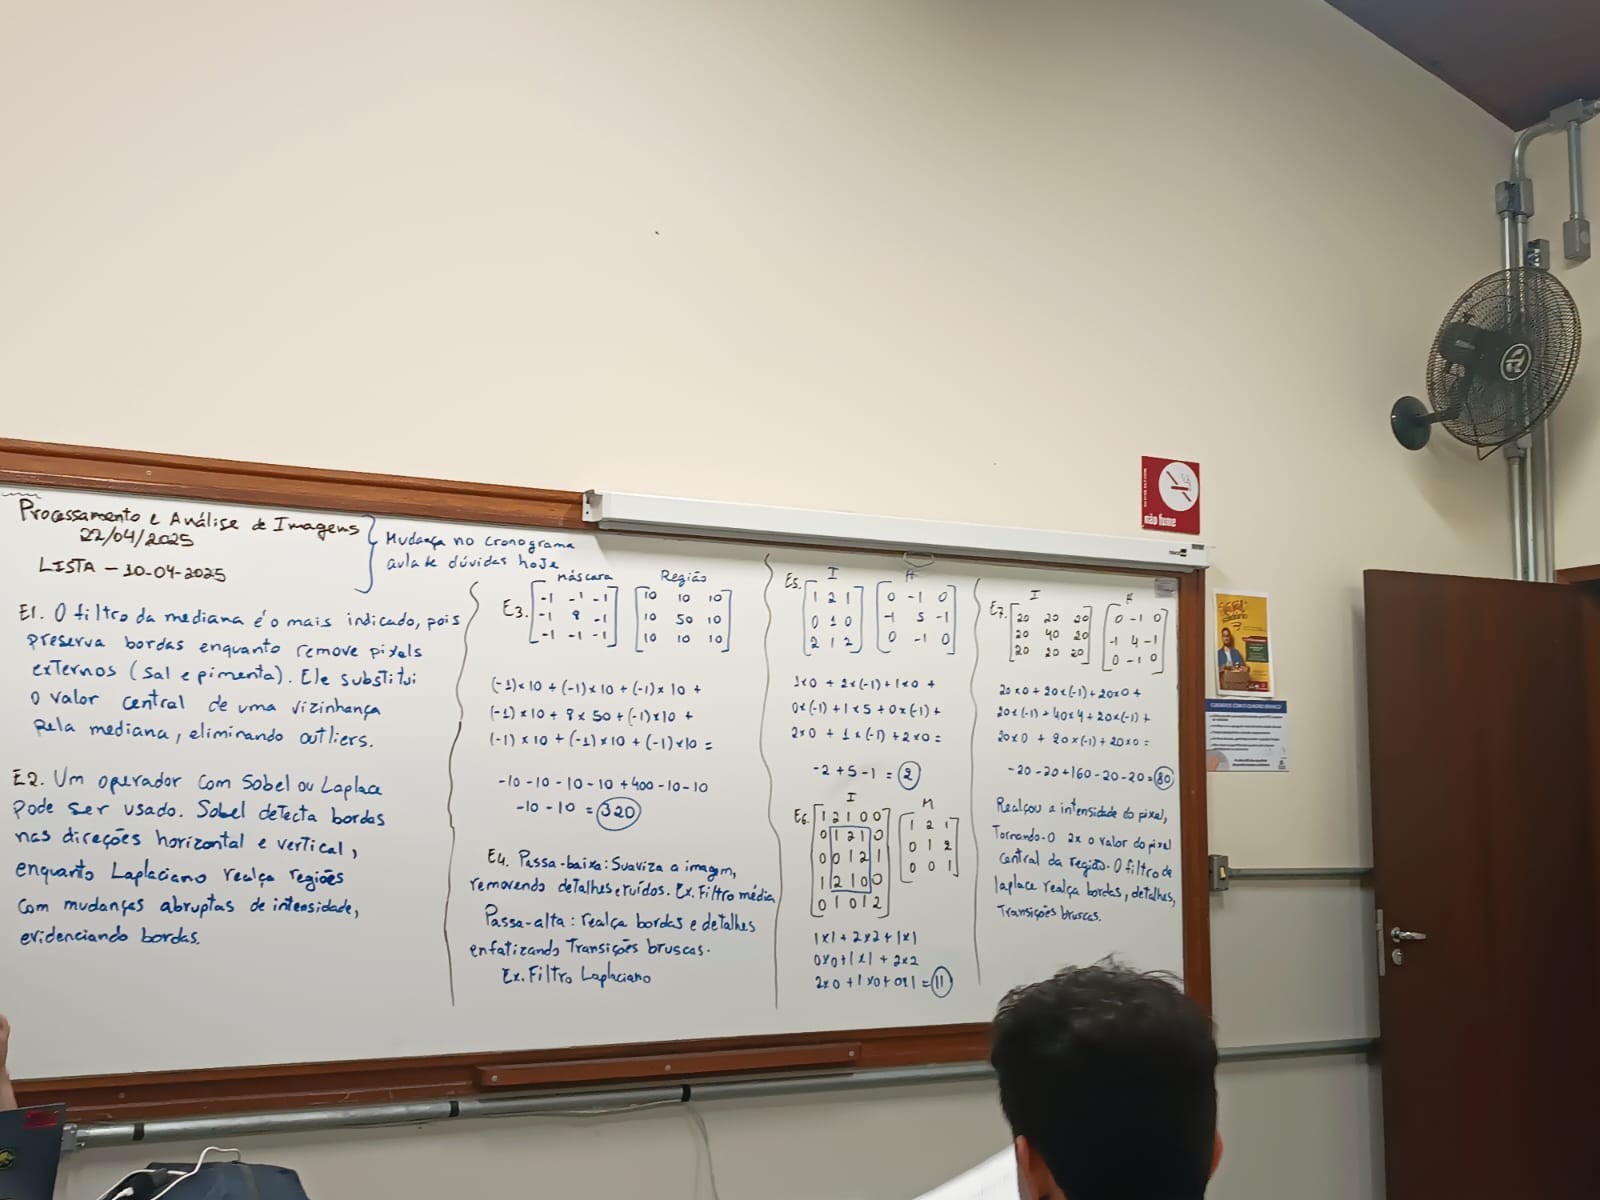 Processamento e Análise de Imagens
22/04/2025
Mudança no cronograma
aula de dúvidas hoje
LISTA - 10-04-2025
E1. O filtro da mediana é o mais indicado, pois
preserva bordas enquanto remove pixels
externos (sal e pimenta). Ele substitui
o valor central de uma vizinhança
pela mediana, eliminando outliers.
E2. Um operador com Sobel ou Laplace
pode ser usado. Sobel detecta bordas
nas direções horizontal e vertical,
enquanto Laplaciano realça regiões
com mudanças abruptas de intensidade,
evidenciando bordas.
máscara Região
E3.
-1 -1 -1 10 10 10
-1 8 -1 10 50 10
-1 -1 -1 10 10 10
(-1)x10 + (-1)x10 + (-1)x10 +
(-1)x10 + 8x50 + (-1)x10 +
(-1)x10 + (-1)x10 + (-1)x10 =
-10-10-10-10+400-10-10
-10-10 = 320
E4. Passa-baixa: Suaviza a imagem,
removendo detalhes e ruídos. Ex. Filtro média
Passa-alta: realça bordas e detalhes
enfatizando transições bruscas.
Ex. Filtro Laplaciano
E5. I H
1 2 1 0 -1 0
0 1 0 -1 5 -1
2 1 2 0 -1 0
1x0 + 2x(-1) + 1x0 +
0x(-1) + 1x5 + 0x(-1) +
2x0 + 1x(-1) + 2x0 =
-2+5-1 = 2
I M
E6.
1 2 1 0 0
0 1 2 1 0 1 2 1
0 0 1 2 1 0 1 2
1 2 1 0 0 0 0 1
0 1 0 1 2
1x1 + 2x2 + 1x1
0x0 + 1x1 + 2x2
2x0 + 1x0 + 0x1 = 11
I
E7.
20 20 20 0 -1 0
20 40 20 -1 4 -1
20 20 20 0 -1 0
20x0 + 20x(-1) + 20x0 +
20x(-1) + 40x4 + 20x(-1) +
20x0 + 20x(-1) + 20x0 =
-20-20+160-20-20 = 80
Realçou a intensidade do pixel,
Tornando-o 2x o valor do pixel
central da região. O filtro de
laplace realça bordas, detalhes,
Transições bruscas.
não fume